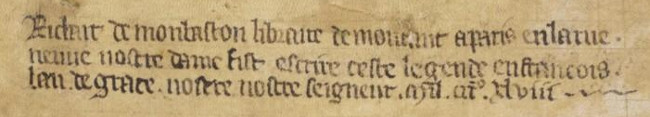 Richart de monbaston libraire demourant a paris en la rue
neuue nostre dame fist escrire ceste legende en francois.
lan. de grace. nostre nostre seigneur. mil. ccc. xlviii